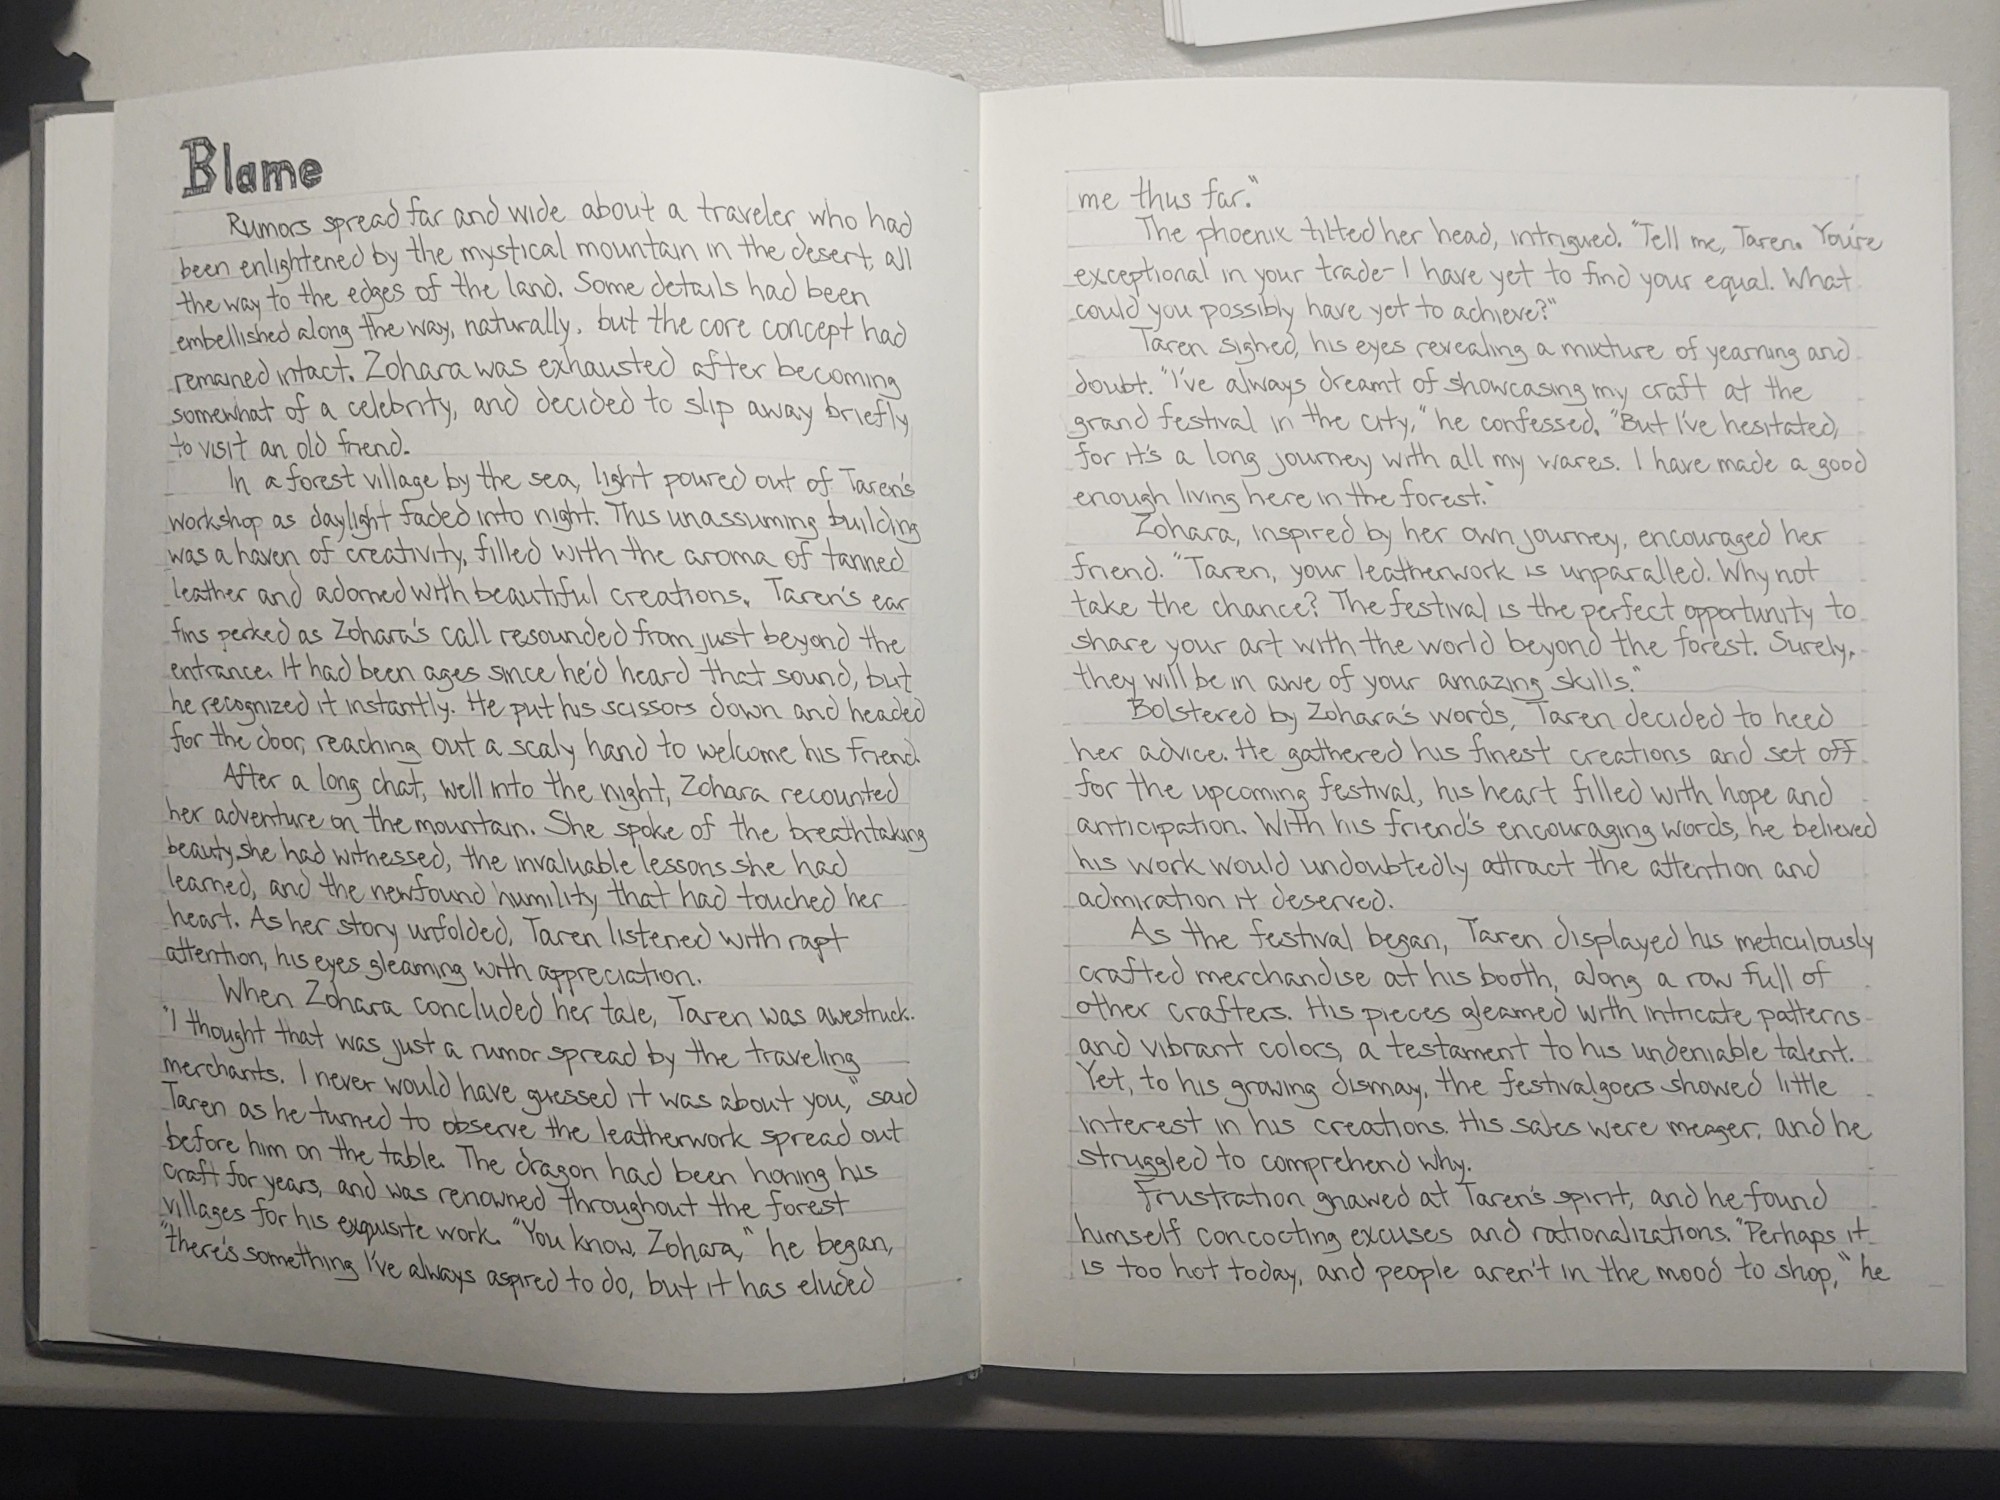 Blame
Rumors spread far and wide about a traveler who had
been enlightened by the mystical mountain in the desert, all
the way to the edges of the land. Some details had been
embellished along the way, naturally, but the core concept had
remained intact. Zohara was exhausted after becoming
somewhat of a celebrity, and decided to slip away briefly
to visit an old friend.
In a forest village by the sea, light poured out of Taren's
workshop as daylight faded into night. This unassuming building
was a haven of creativity, filled with the aroma of tanned
leather and adorned with beautiful creations. Taren's ear
fins perked as Zohara's call resounded from just beyond the
entrance. It had been ages since he'd heard that sound, but
he recognized it instantly. He put his scissors down and headed
for the door, reaching out a scaly hand to welcome his friend.
After a long chat, well into the night, Zohara recounted
her adventure on the mountain. She spoke of the breathtaking
beauty she had witnessed, the invaluable lessons she had
learned, and the newfound humility that had touched her
heart. As her story unfolded, Taren listened with rapt
attention, his eyes gleaming with appreciation.
When Zohara concluded her tale, Taren was awestruck.
"I thought that was just a rumor spread by the traveling
merchants. I never would have guessed it was about you," said
Taren as he turned to observe the leatherwork spread out
before him on the table. The dragon had been honing his
craft for years, and was renowned throughout the forest
villages for his exquisite work. "You know, Zohara," he began,
"there's something I've always aspired to do, but it has eluded
me thus far."
The phoenix tilted her head, intrigued. "Tell me, Taren. You're
exceptional in your trade- I have yet to find your equal. What
could you possibly have yet to achieve?"
Taren sighed, his eyes revealing a mixture of yearning and
doubt. "I've always dreamt of showcasing my craft at the
grand festival in the city," he confessed. "But I've hesitated,
for it's a long journey with all my wares. I have made a good
enough living here in the forest."
Zohara, inspired by her own journey, encouraged her
friend. "Taren, your leatherwork is unparalled. Why not
take the chance? The festival is the perfect opportunity to
share your art with the world beyond the forest. Surely,
they will be in awe of your amazing skills."
Bolstered by Zohara's words, Taren decided to heed
her advice. He gathered his finest creations and set off
for the upcoming festival, his heart filled with hope and
anticipation. With his friend's encouraging words, he believed
his work would undoubtedly attract the attention and
admiration it deserved.
As the festival began, Taren displayed his meticulously
crafted merchandise at his booth, along a row full of
other crafters. His pieces gleamed with intricate patterns
and vibrant colors, a testament to his undeniable talent.
Yet, to his growing dismay, the festivalgoers showed little
interest in his creations. His sales were meager, and he
struggled to comprehend why.
Frustration gnawed at Taren's spirit, and he found
himself concocting excuses and rationalizations. "Perhaps it
is too hot today, and people aren't in the mood to shop," he